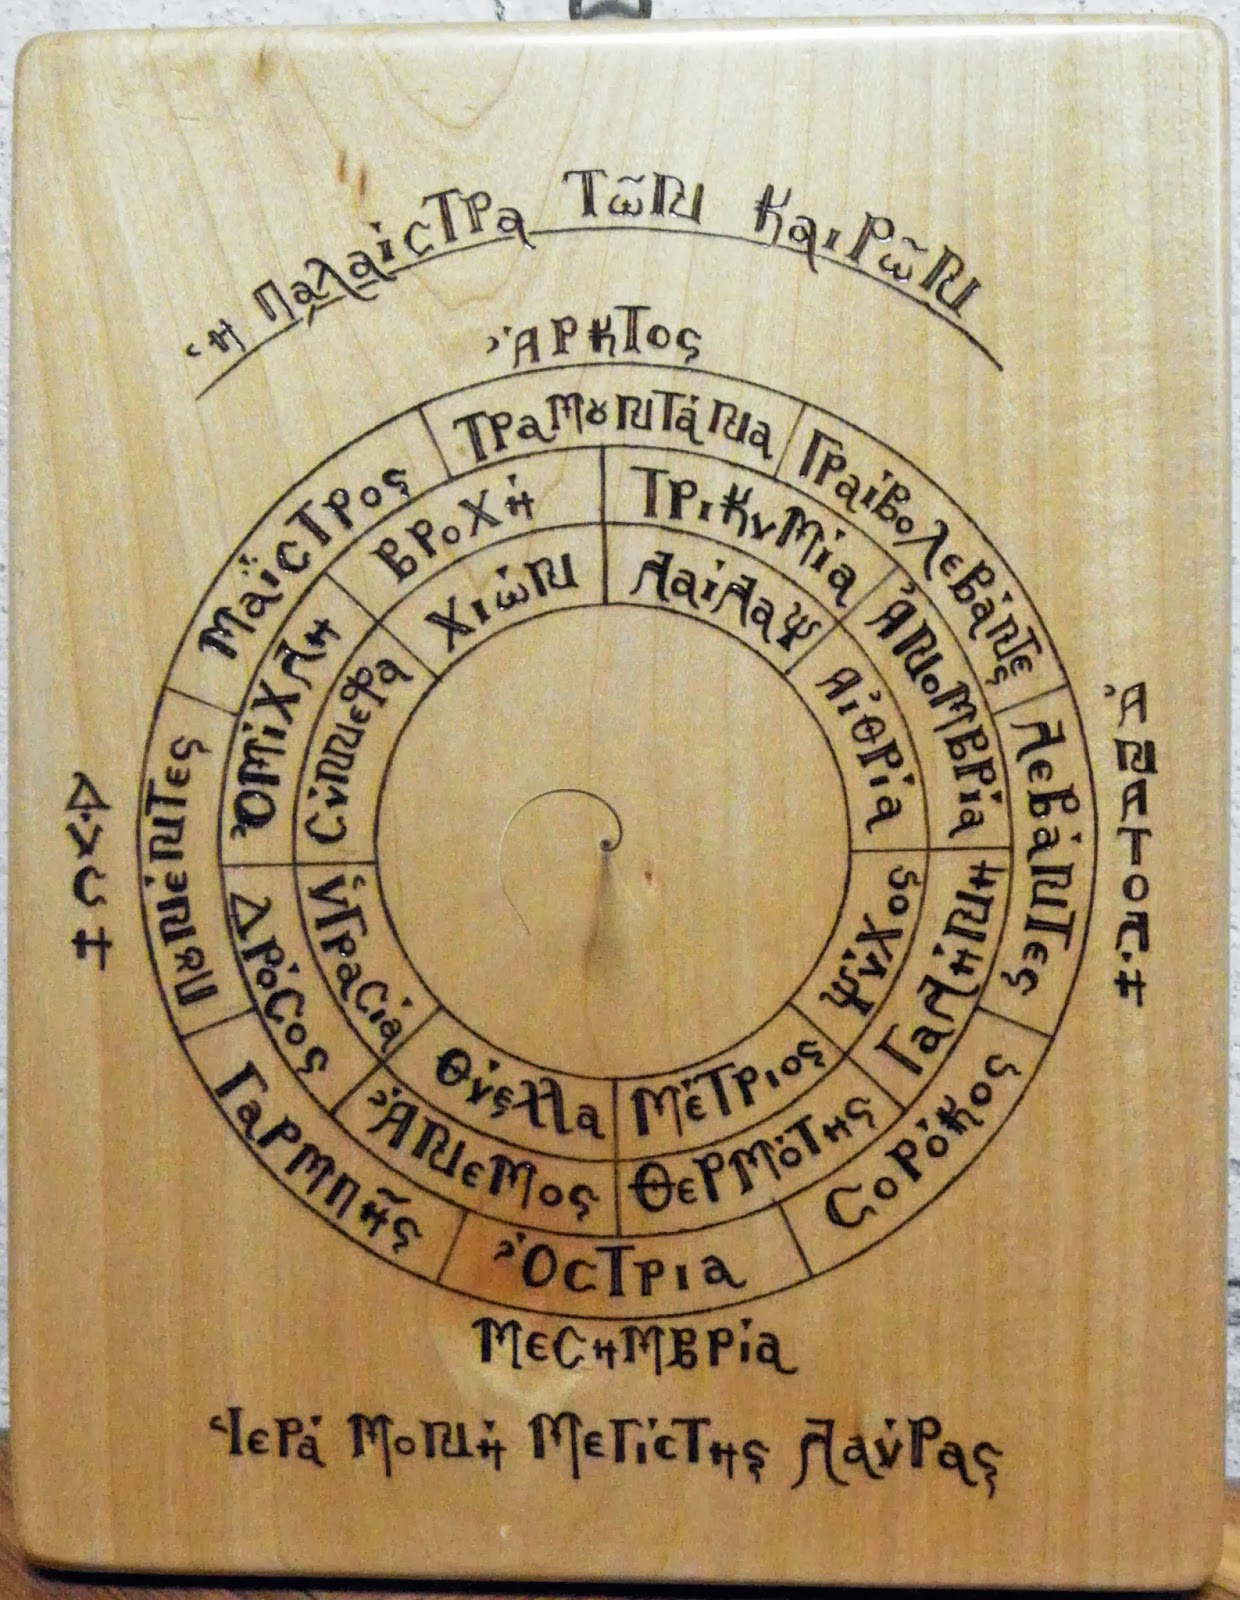 Ἡ Παλαίστρα τῶν καιρῶν
Ἄρκτος
Τραμουντάνα
Γραίβολεβάντες
Λεβάντες
Σορόκος
Ὄστρια
Γαρμπῆς
Πουνέντες
Μαΐστρος
Βροχή
Τρικυμία
Ἀνομβρία
Γαλήνη
Θερμότης
Ἄνεμος
Δρόσος
Ὀμίχλη
Χιών
Λαίλαψ
Αἰθρία
Ψύχος
Μέτριος
Θύελλα
Ὑγρασία
Σύννεφα
Ἀνατολή
Δύση
Μεσημβρία
Ἱερά Μονή Μεγίστης Λαύρας